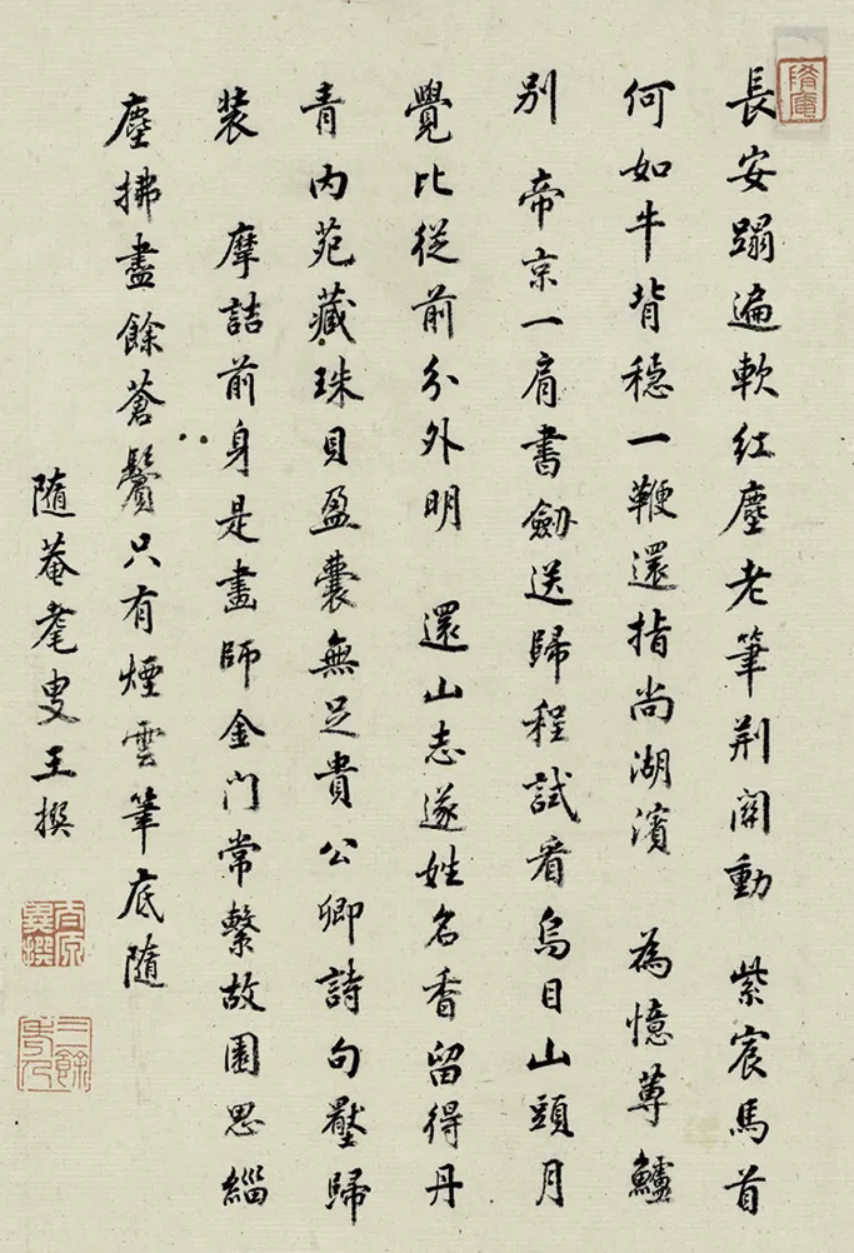 長安蹋遍軟紅塵老筆荆關動　紫宸馬首
何如牛背穩一鞭還指尚湖濱　為憶蓴鱸
別　帝京一肩書劒送歸程試看烏目山頭月
覺比從前分外明　還山志遂姓名香留得丹
青内苑藏珠貝盈囊無足貴公卿詩句壓歸
装　摩詰前身是畫師金门常繫故園思緇
塵拂盡餘蒼鬢只有煙雲筆底隨
隨菴耄叟王撰
隨菴
王撰
三餘